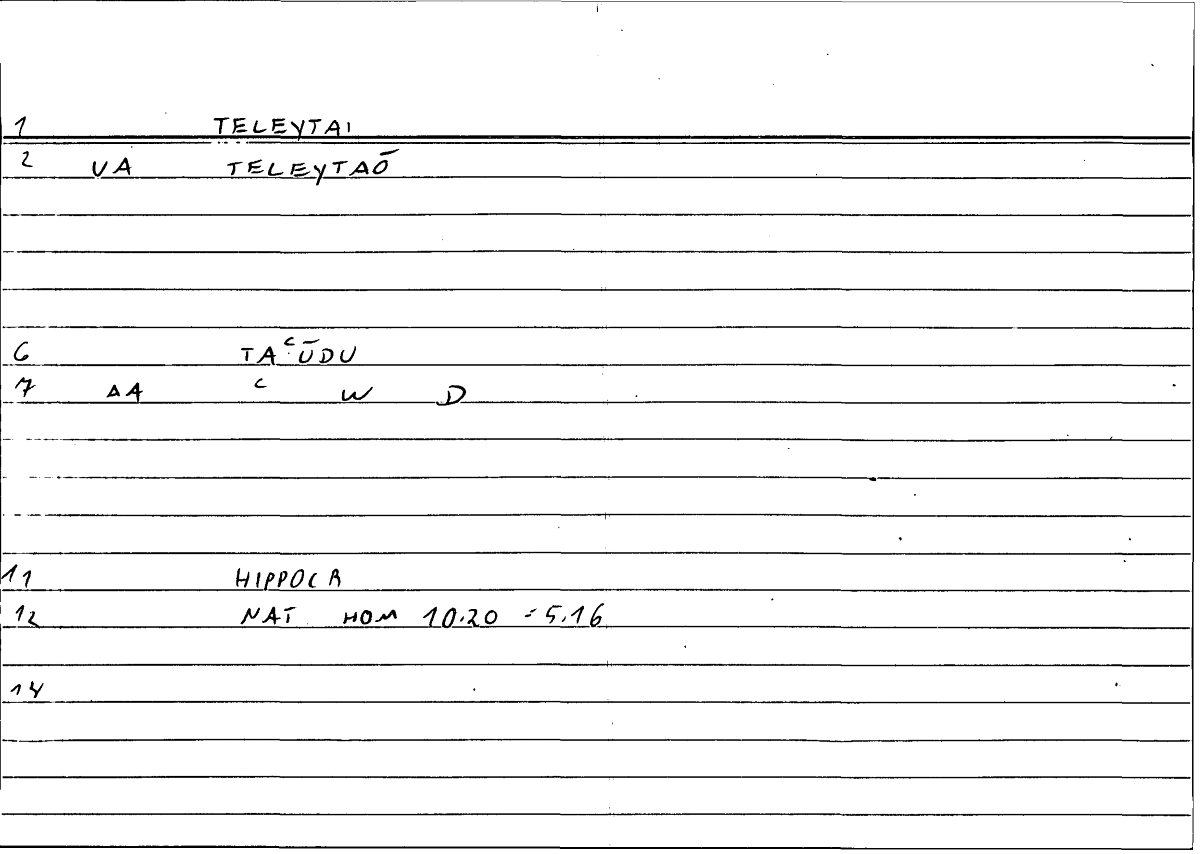 1 TELEYTAI
2 VA TELEYTAŌ
6 TAᶜŪDU
7 AA ᶜ W D
11 HIPPOCR
12 NAT HOM 10.20 = 5.16
14